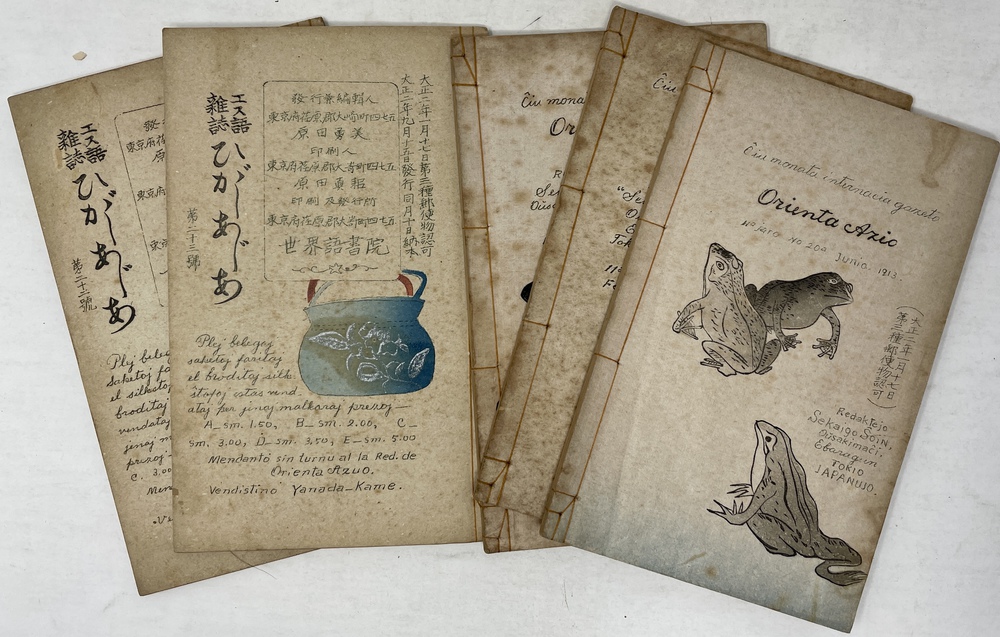 エス語
雑誌
ひがしあじあ
第二十二號
發行
東京府荏
原
東京府
Plej beleg
saketoj fa
el silkstof
broditaj
vendata
jenaj m
prezoj—
C. 3,00
Men
エス語
雜誌
ひがしあじあ
第二十三號
發行兼編輯人
東京府荏原郡大崎町四七五
原田勇美
印刷人
東京府荏原郡大崎町四七五
原田勇
印刷及發行所
東京府荏原郡大崎町四七五
世界語書院
大正二年一月十七日第三種郵便物認可
大正二年九月十五日發行同月十日納本
Plej belegaj
saketoj faritaj
el broditaj silk-
stofoj estas vend-
ataj per jenaj malkaraj prezoj—
A_ sm. 1.50, B_ sm. 2.00, C_
sm. 3,00, D_ sm. 3,50, E_ sm. 5.00
Mendanto sin turnu al la Red. de
Orienta Azio.
Vendistino Yanada-Kame.
Ĉiu mona
Or
Se
Ousa
Ĉiu
"Se
O
Tok
Ĉiu monata internacia gazeto
Orienta Azio
No 20a Junio. 1913.
(大正二年一月十七日
第三種郵便物認可)
Redaktejo
Sekaigo Ŝoin,
Oŭsakimaĉi,
Ebaragun
TOKIO
JAPANUJO.